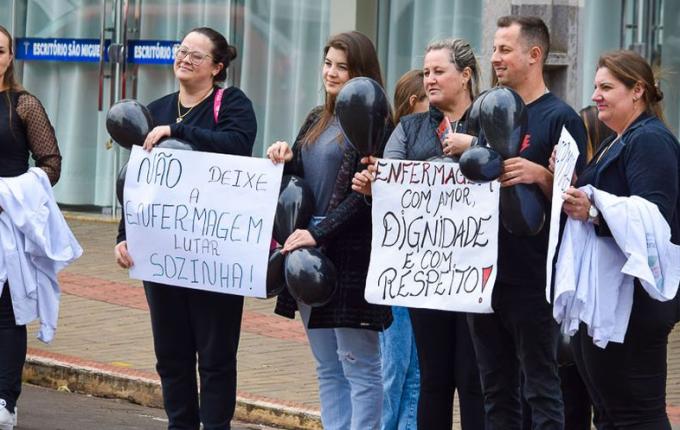 ESCRITÓRIO SÃO MIGUEL
ESCRITÓRIO S
NÃO DEIXE
A
ENFERMAGEM
LUTAR
SOZINHA!
ENFERMAGEM
COM AMOR,
DIGNIDADE
E COM
RESPEITO!